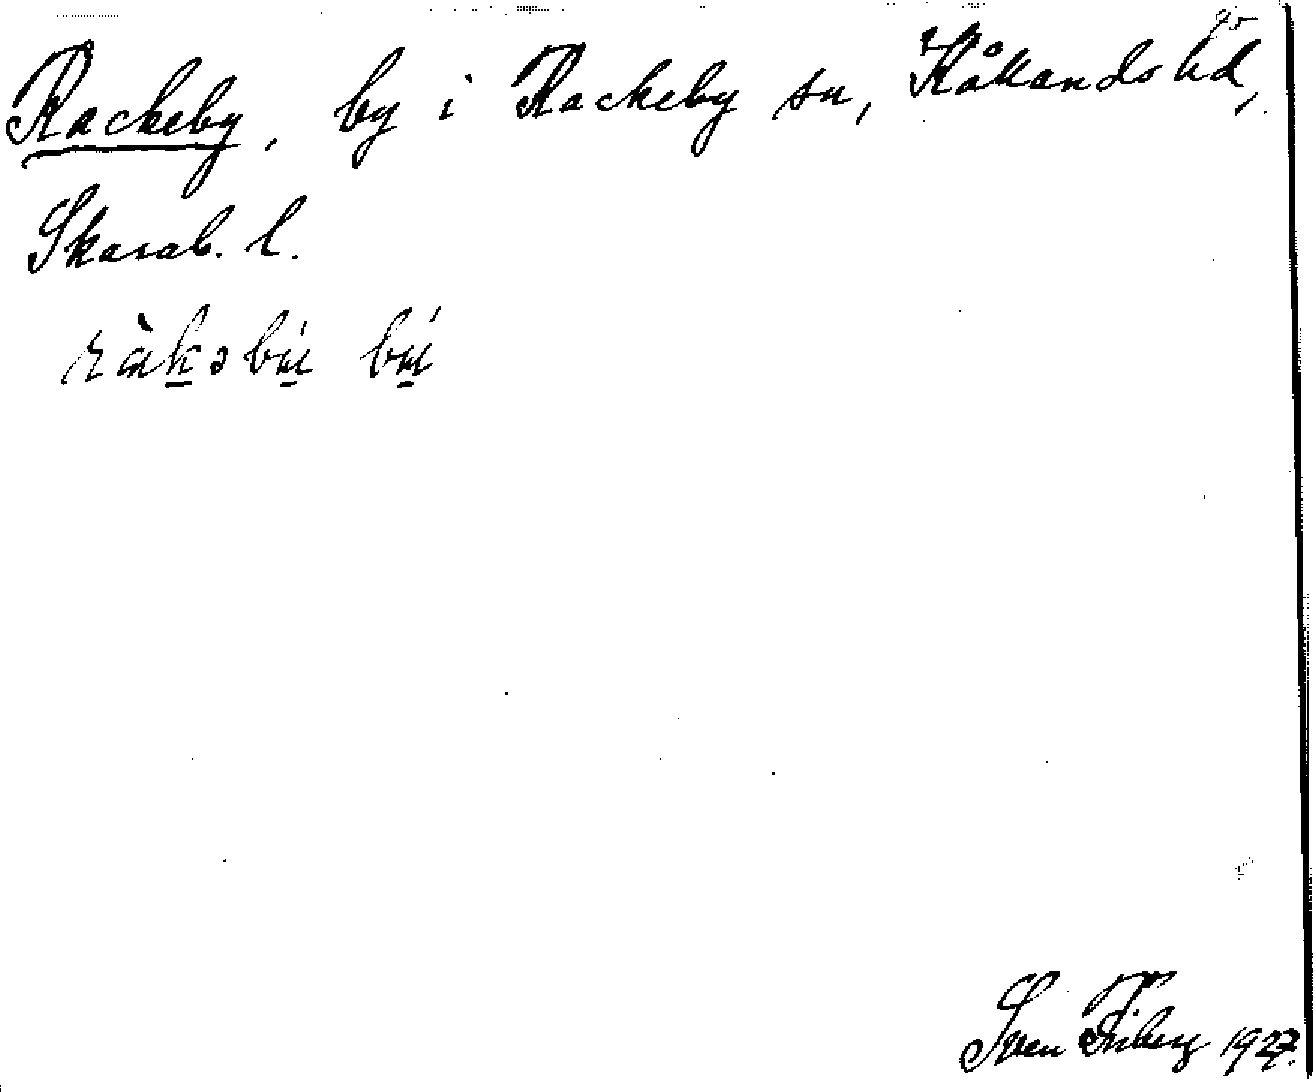 Rackeby, by i Rackeby sn, Kållands hd,
Skarab. l.
Sven Friberg 1927.